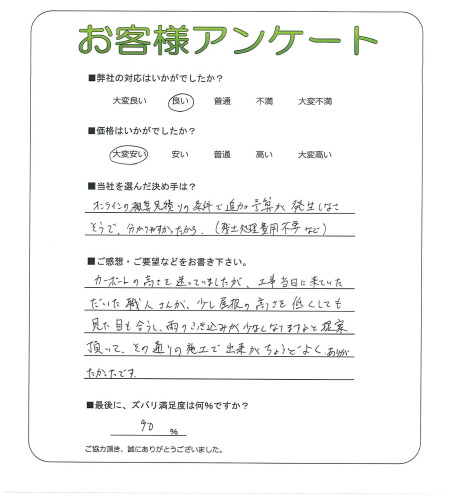 お客様アンケート
■弊社の対応はいかがでしたか？
大変良い 良い 普通 不満 大変不満
■価格はいかがでしたか？
大変安い 安い 普通 高い 大変高い
■当社を選んだ決め手は？
オンラインの概算見積りの条件で追加予算が発生しなさ
そうで、分かりやすかったから。(残土処理費用不要など)
■ご感想・ご要望などをお書き下さい。
カーポートの高さで迷っていましたが、工事当日に来ていた
だいた職人さんが、少し屋根の高さを低くしても
見た目も合うし、雨のふき込みが少なくなりますよと提案
頂いて、その通りの施工で出来がちょうどよく、ありが
たかったです。
■最後に、ズバリ満足度は何％ですか？
90 ％
ご協力頂き、誠にありがとうございました。